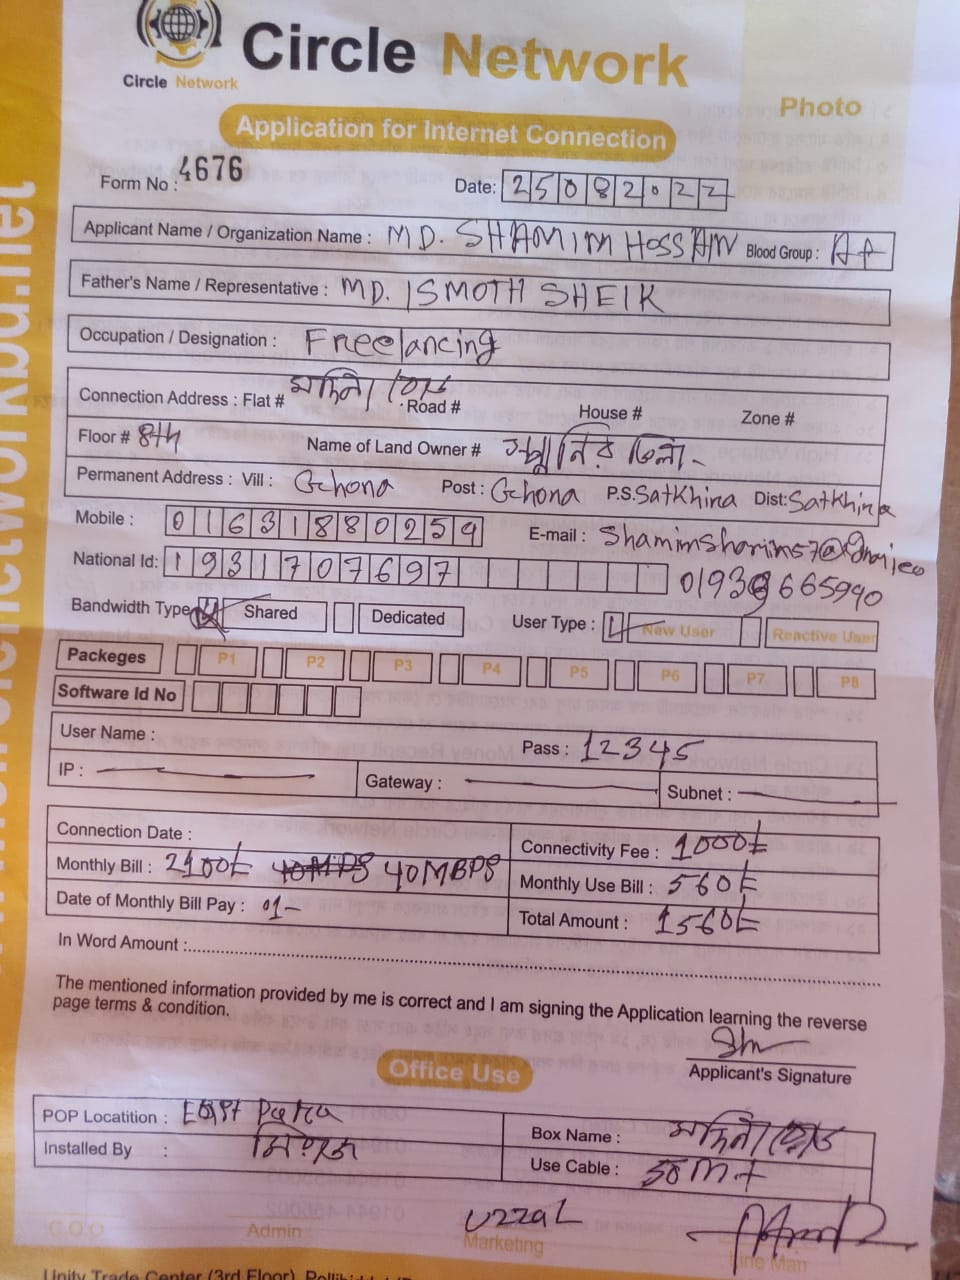 Circle Network
Circle Network
Photo
Application for Internet Connection
Form No : 4676
Date: 25082022
Applicant Name / Organization Name : MD. SHAMIM HOSSAIN Blood Group : A+
Father's Name / Representative : MD. ISMOTH SHEIK
Occupation / Designation : Freelancing
Connection Address : Flat # মদিনা : Road # House # Zone #
Floor # 8th Name of Land Owner #
Permanent Address : Vill : Gchona Post : Gchona P.S. Satkhira Dist: Satkhira
Mobile : 01631880259 E-mail :
National Id: 1931707697
Bandwidth Type Shared Dedicated User Type : New User Reactive User
Packeges P1 P2 P3 P4 P5 P6 P7 P8
Software Id No
User Name : Pass : 12345
IP : Gateway : Subnet :
Connection Date : Connectivity Fee : 1000t
Monthly Bill : 2100t 40MBPS Monthly Use Bill : 560t
Date of Monthly Bill Pay : 01- Total Amount : 1560t
In Word Amount :
The mentioned information provided by me is correct and I am signing the Application learning the reverse
page terms & condition.
Applicant's Signature
Office Use
POP Locatition : Box Name : মদিনা
Installed By : Use Cable : 50 Mt
Uzzal
C.O.O Admin Marketing Line Man
Unity Trade Center (3rd Floor),